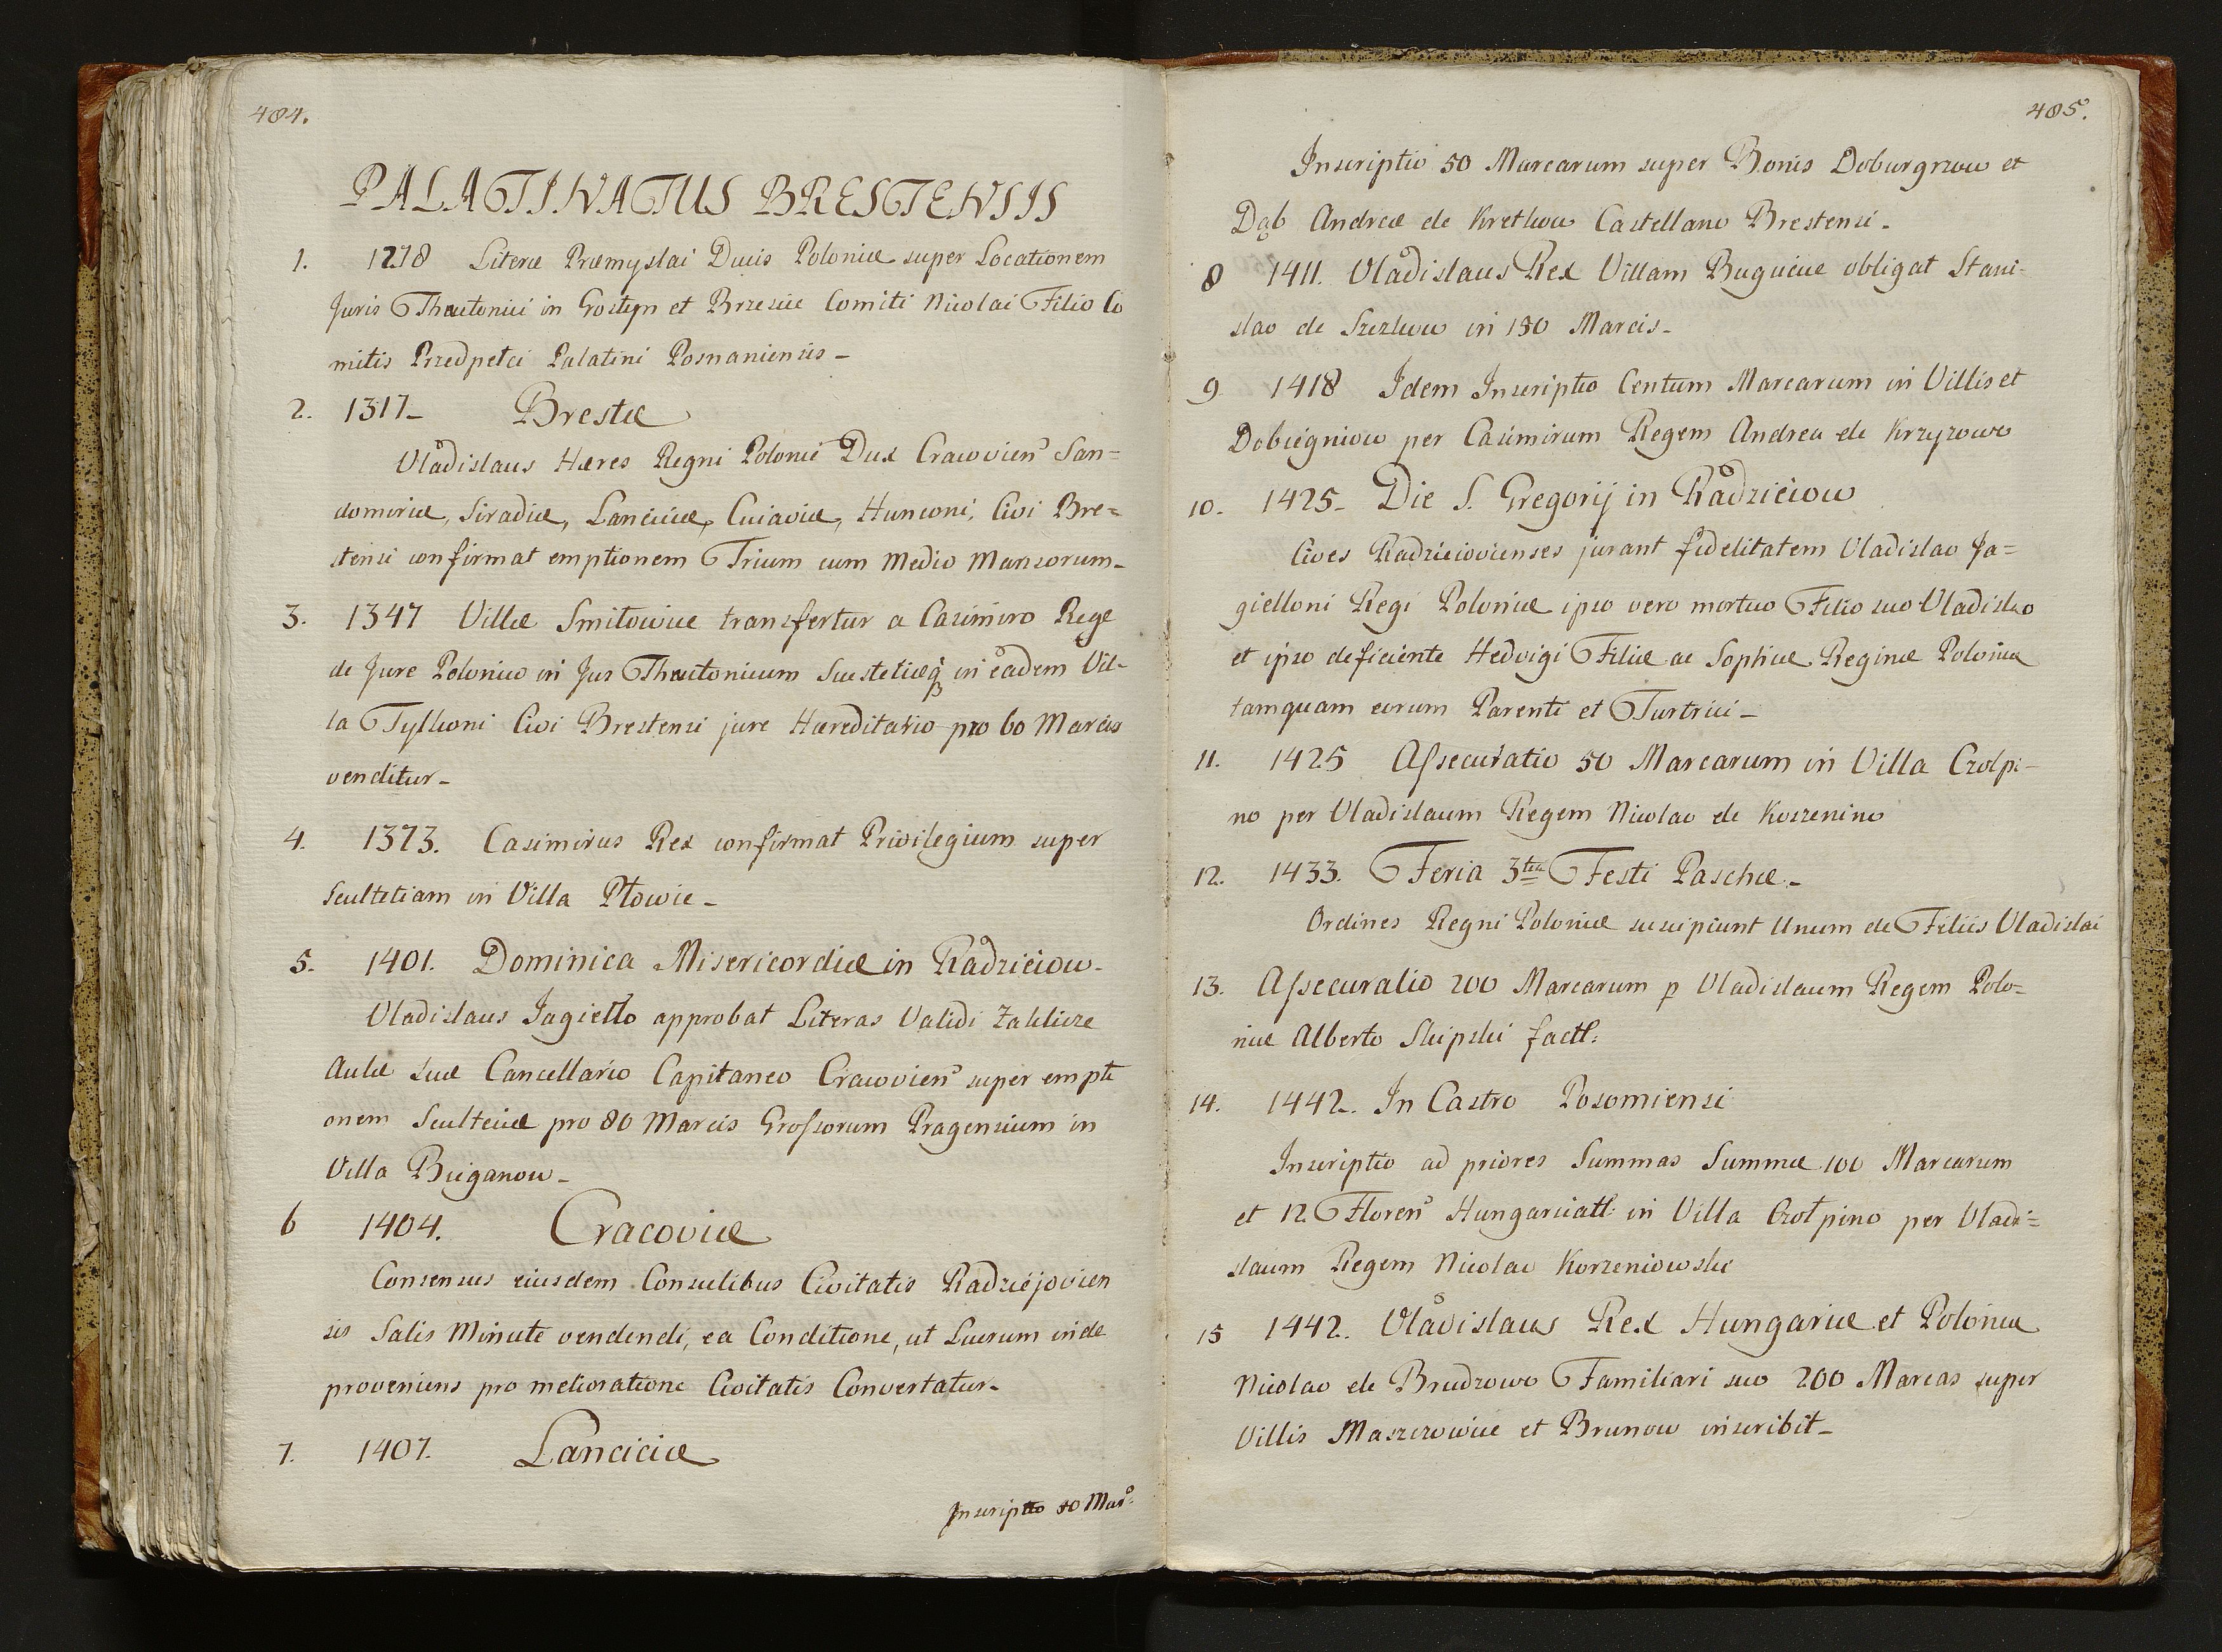 484.
PALATINATUS BRESTENSIS
1. 1278 Literæ Præmyslai Ducis Poloniæ super Locationem
Juris Theutonici in Gostyn et Brzescie Comiti Nicolai Filio Co
mitis Przedpelci Palatini Posnaniensis_
2. 1317_ Brestæ
Vladislaus Hæres Regni Polonie Dux Cracovien̄ San=
domiriæ, Siradiæ, Lanciciæ, Cuiaviæ, Hunconi, Civi Bre=
stensi confirmat emptionem Trium cum Medio Mansorum_
3. 1347 Villæ Smilowice transfertur a Casimiro Rege
de Jure Polonico in Jus Theutonicum Scultetiæq in eadem Vil-
la Tylkoni Civi Brestensi jure Hæreditario pro 60 Marcis
venditur_
4. 1373. Casimirus Rex confirmat Privilegium super
Scultetiam in Villa Płowie_
5. 1401. Dominica Misericordiæ in Radzieiow_
Vladislaus Jagiełło approbat Literas Validi Zaklicze
Aulæ suæ Cancellario Capitaneo Cracovien̄ super empti
onem Scultetiæ pro 80 Marcis Grossorum Pragensium in
Villa Bieganow_
6 1404. Cracoviæ
Consensus eiusdem Consulibus Civitatis Radziejovien
sis Salis Minute vendendi, ea Conditione, ut Lucrum inde
proveniens pro melioratione Civitatis Convertatur_
7. 1407. Lanciciæ
Inscriptio 50 Mar:
485.
Inscriptio 50 Marcarum super Bonis Doburgrzow et
Dąb Andreæ de Krethow Castellano Brestensi_
8 1411. Vladislaus Rex Villam Buguciue obligat Stani-
slao de Szczkow in 150 Marcis_
9. 1418 Idem Inscriptio Centum Marcarum in Villis et
Dobiegniow per Casimirum Regem Andrea de Krzyzowo
10. 1425_ Die S. Gregorij in Radzieiow
Cives Radzieiovienses jurant fidelitatem Vladislao Ja=
gielloni Regi Poloniæ ipso vero mortuo Filio suo Vladislao
et ipso deficiente Hedvigi Filiæ ac Sophiæ Reginæ Poloniæ
tamquam eorum Parenti et Turtrici_
11. 1425 Assecuratio 50 Marcarum in Villa Czołpi-
no per Vladislaum Regem Nicolao de Koszenino
12. 1433. Feria 3tia Festi Paschæ_
Ordines Regni Poloniæ suscipiunt Unum de Filiis Vladislai
13. Assecuratio 200 Marcarum p Vladislaum Regem Polo=
niæ Alberto Slupski factt:
14. 1442. In Castro Posomiensi
Inscriptio ad priores Summas Summæ 100 Marcarum
et 12 Floren̄ Hungaricatt: in Villa Czołpino per Vladi=
slaum Regem Nicolao Korzeniowski
15 1442. Vladislaus Rex Hungariæ et Poloniæ
Nicolao de Brudzowo Familiari suo 200 Marcas super
Villis Maszczowice et Brunow inscribit_